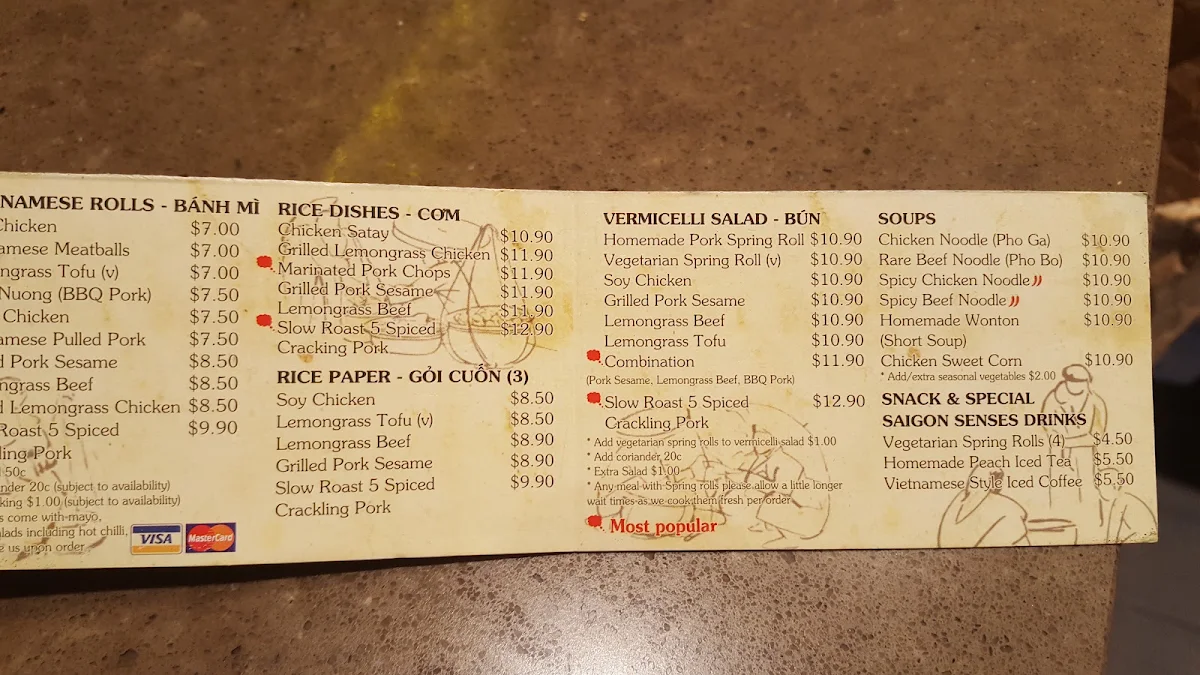 NAMESE ROLLS - BÁNH MÌ
Chicken $7.00
amese Meatballs $7.00
ngrass Tofu (v) $7.00
Nuong (BBQ Pork) $7.50
Chicken $7.50
amese Pulled Pork $7.50
d Pork Sesame $8.50
ngrass Beef $8.50
d Lemongrass Chicken $8.50
Roast 5 Spiced $9.90
ling Pork
50c
nder 20c (subject to availability)
king $1.00 (subject to availability)
s come with mayo,
lads including hot chilli,
e us upon order
VISA MasterCard
RICE DISHES - CƠM
Chicken Satay $10.90
Grilled Lemongrass Chicken $11.90
Marinated Pork Chops $11.90
Grilled Pork Sesame $11.90
Lemongrass Beef $11.90
Slow Roast 5 Spiced $12.90
Crackling Pork
RICE PAPER - GỎI CUỐN (3)
Soy Chicken $8.50
Lemongrass Tofu (v) $8.50
Lemongrass Beef $8.90
Grilled Pork Sesame $8.90
Slow Roast 5 Spiced $9.90
Crackling Pork
VERMICELLI SALAD - BÚN
Homemade Pork Spring Roll $10.90
Vegetarian Spring Roll (v) $10.90
Soy Chicken $10.90
Grilled Pork Sesame $10.90
Lemongrass Beef $10.90
Lemongrass Tofu $10.90
Combination $11.90
(Pork Sesame, Lemongrass Beef, BBQ Pork)
Slow Roast 5 Spiced $12.90
Crackling Pork
* Add vegetarian spring rolls to vermicelli salad $1.00
* Add coriander 20c
* Extra Salad $1.00
* Any meal with Spring rolls please allow a little longer
wait times as we cook them fresh per order
Most popular
SOUPS
Chicken Noodle (Pho Ga) $10.90
Rare Beef Noodle (Pho Bo) $10.90
Spicy Chicken Noodle $10.90
Spicy Beef Noodle $10.90
Homemade Wonton $10.90
(Short Soup)
Chicken Sweet Corn $10.90
* Add/extra seasonal vegetables $2.00
SNACK & SPECIAL
SAIGON SENSES DRINKS
Vegetarian Spring Rolls (4) $4.50
Homemade Peach Iced Tea $5.50
Vietnamese Style Iced Coffee $5.50